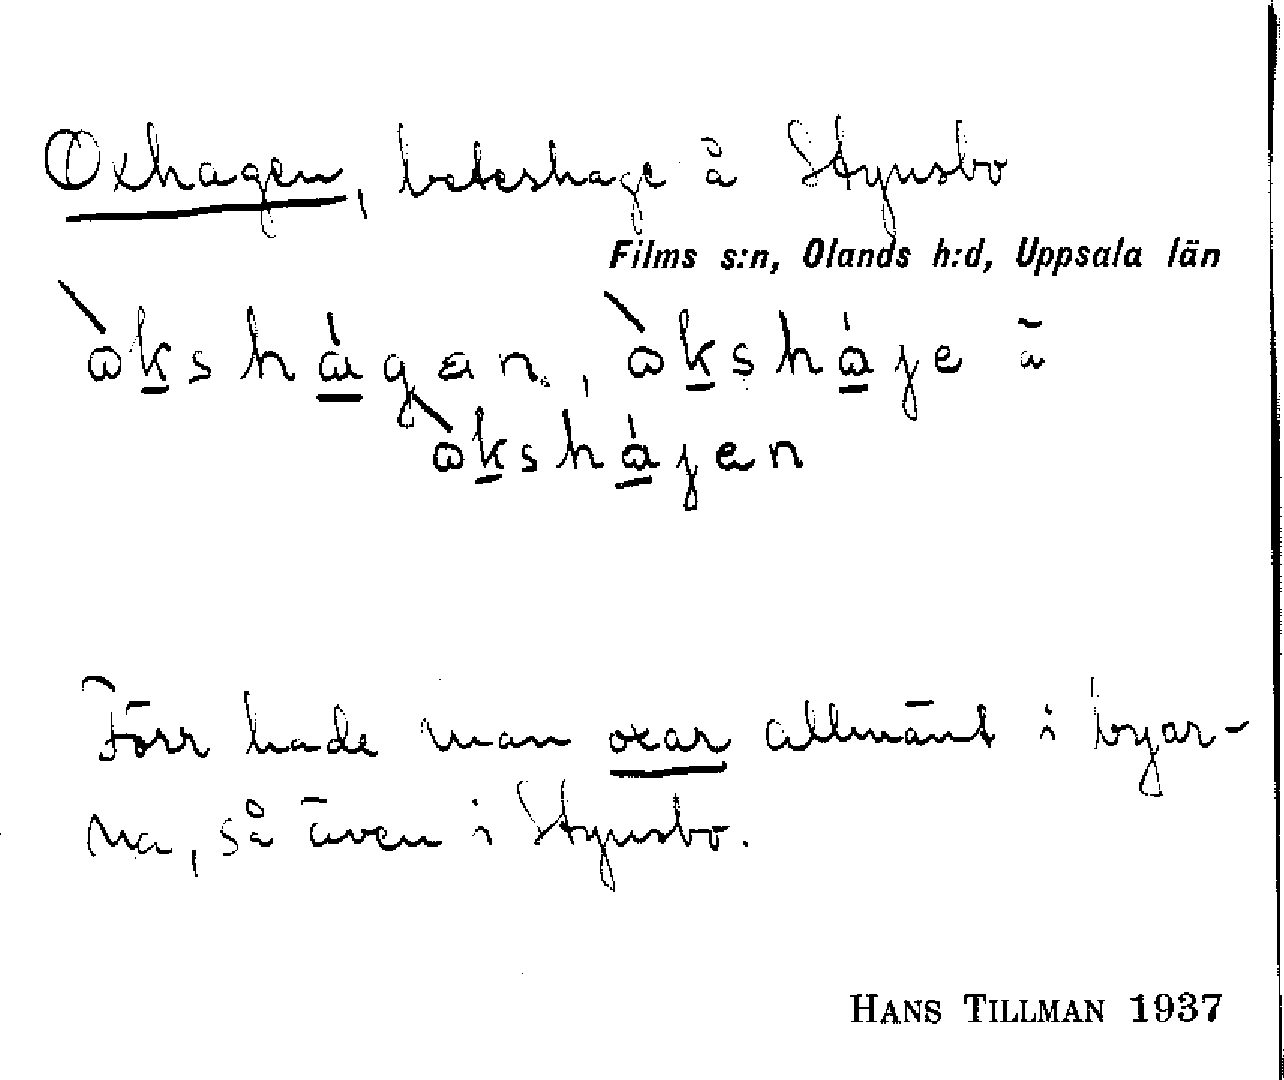 Oxhagen, beteshage å Stynsbo
Films s:n, Olands h:d, Uppsala län
òkshágan, òksháje ä
òkshájen
Förr hade man oxar allmänt i byar-
na, så även i Stynsbo.
HANS TILLMAN 1937